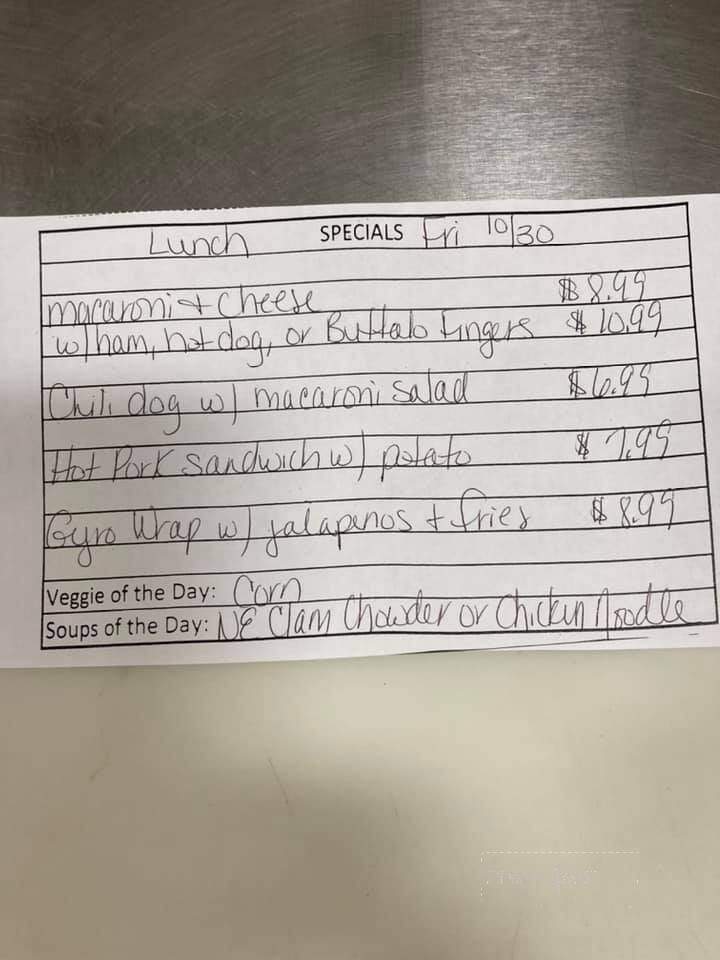 Lunch SPECIALS Fri 10/30
macaroni + cheese $8.99
w/ ham, hot dog, or Buffalo fingers $10.99
Chili dog w/ macaroni salad $6.99
Hot Pork Sandwich w/ potato $7.99
Gyro Wrap w/ jalapenos + fries $8.99
Veggie of the Day: Corn
Soups of the Day: NE Clam Chowder or Chicken Noodle